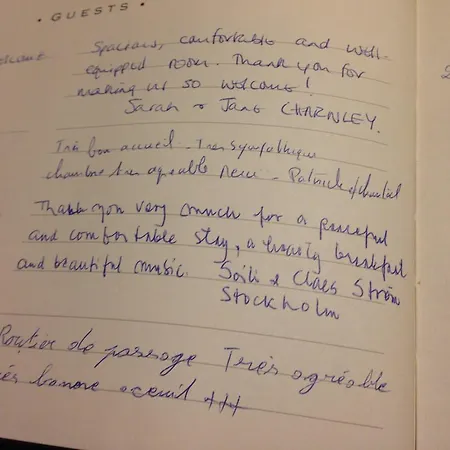 • GUESTS •
Spacious, comfortable and well-
equipped room. Thank you for
making us so welcome!
Sarah & Jane CHARNLEY.
Très bon accueil - Tres sympathique
chambre tres agreable merci - Patrick & chantal
Thank you very much for a peaceful
and comfortable stay, a hearty breakfast
and beautiful music. Soili & Claes Ström
STOCKHOLM
Routier de passage Très agréable
bonne aceuil +++